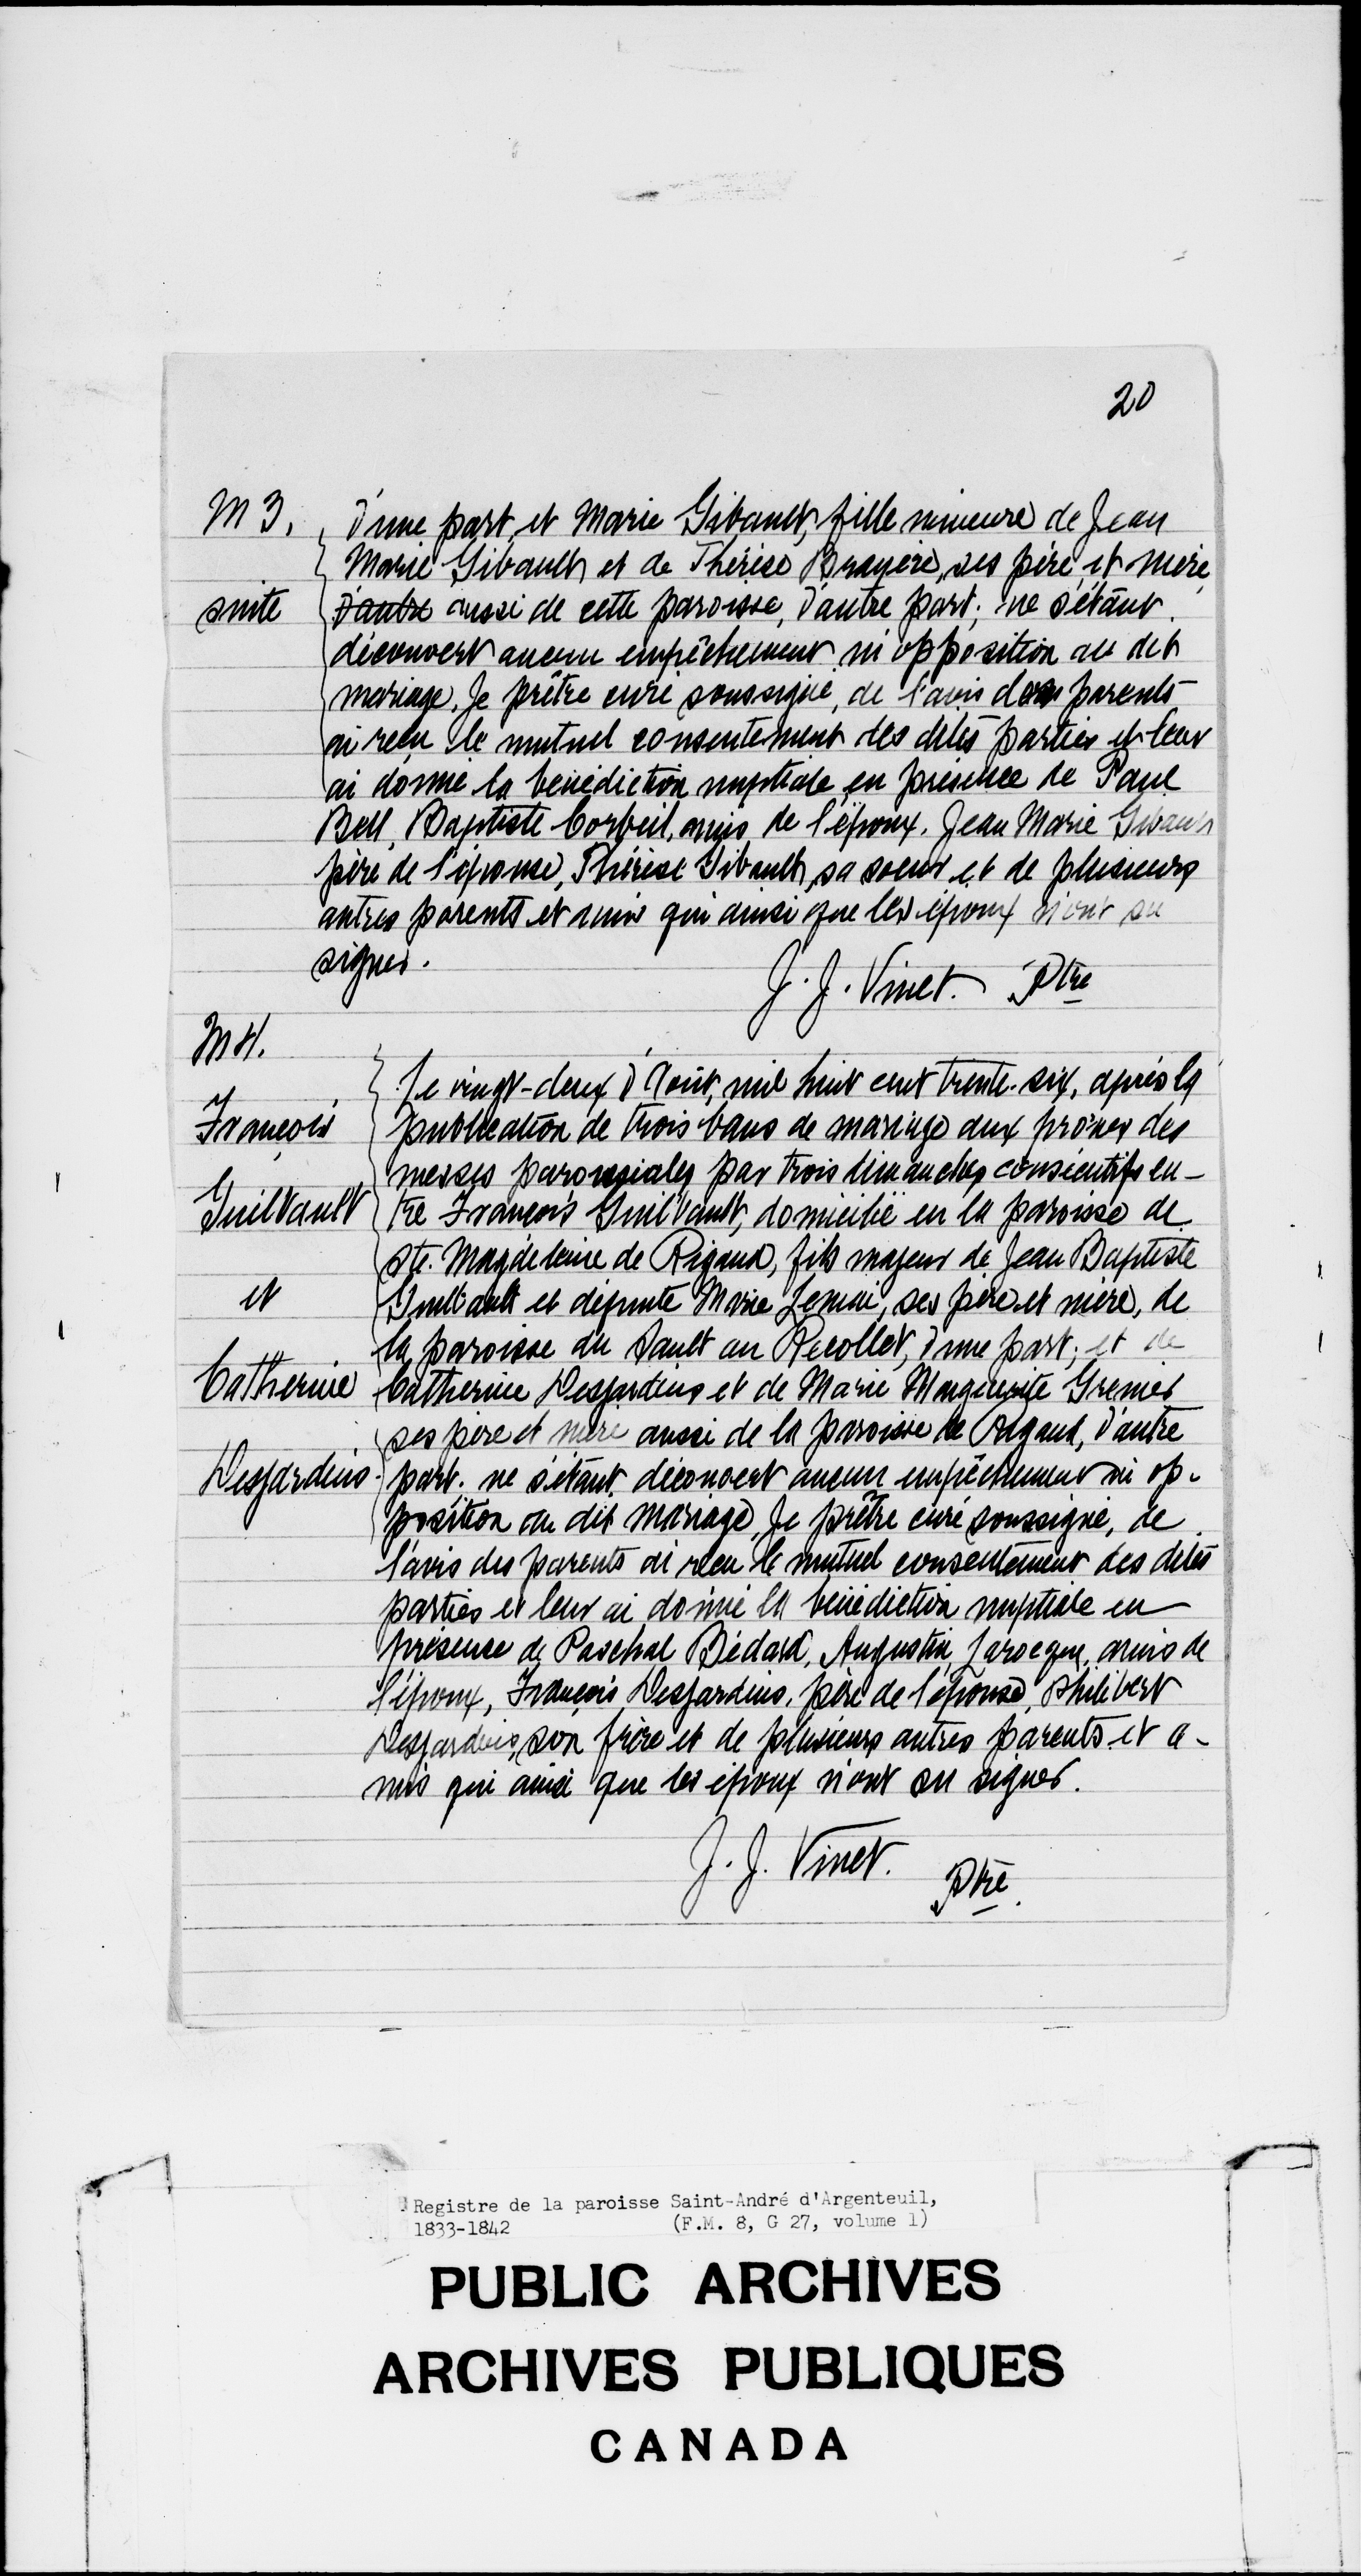 20
M 3. d'une part et Marie Gibault, fille mineure de Jean
Marie Gibault et de Thérèse Bruyère, ses père et mère
suite d'autre aussi de cette paroisse, d'autre part; ne s'étant
découvert aucun empêchement ni opposition au dit
mariage, Je prêtre curé soussigné, de l'avis des parents
ai reçu le mutuel consentement des dites parties et leur
ai donné la bénédiction nuptiale en présence de Paul
Bell, Baptiste Corbeil, amis de l'époux. Jean Marie Gibault
père de l'épouse, Thérèse Gibault, sa soeur et de plusieurs
autres parents et amis qui ainsi que les époux n'ont su
signer.
J. J. Vinet. Ptre
M 4.
Le vingt-deux d'Août, mil huit cent trente-six, après la
François publication de trois bans de mariage aux prônes des
messes paroissiales par trois dimanches consécutifs en-
Guilbault tre François Guilbault, domicilié en la paroisse de
Ste. Magdeleine de Rigaud, fils majeur de Jean Baptiste
et Guilbault et défunte Marie Lemai, ses père et mère, de
la paroisse du Sault au Recollet, d'une part; et de
Catherine Catherine Desjardins et de Marie Marguerite Grenier
ses père et mère aussi de la paroisse de Rigaud, d'autre
Desjardins. part. ne s'étant découvert aucun empêchement ni op-
position au dit mariage, Je prêtre curé soussigné, de
l'avis des parents ai reçu le mutuel consentement des dites
parties et leur ai donné la bénédiction nuptiale en
présence de Paschal Bédard, Augustin Larocque, amis de
l'époux, François Desjardins, père de l'épouse, Philibert
Desjardins, son frère et de plusieurs autres parents et a-
mis qui ainsi que les époux n'ont su signer.
J. J. Vinet. Ptre.
Registre de la paroisse Saint-André d'Argenteuil,
1833-1842 (F.M. 8, G 27, volume 1)
PUBLIC ARCHIVES
ARCHIVES PUBLIQUES
CANADA